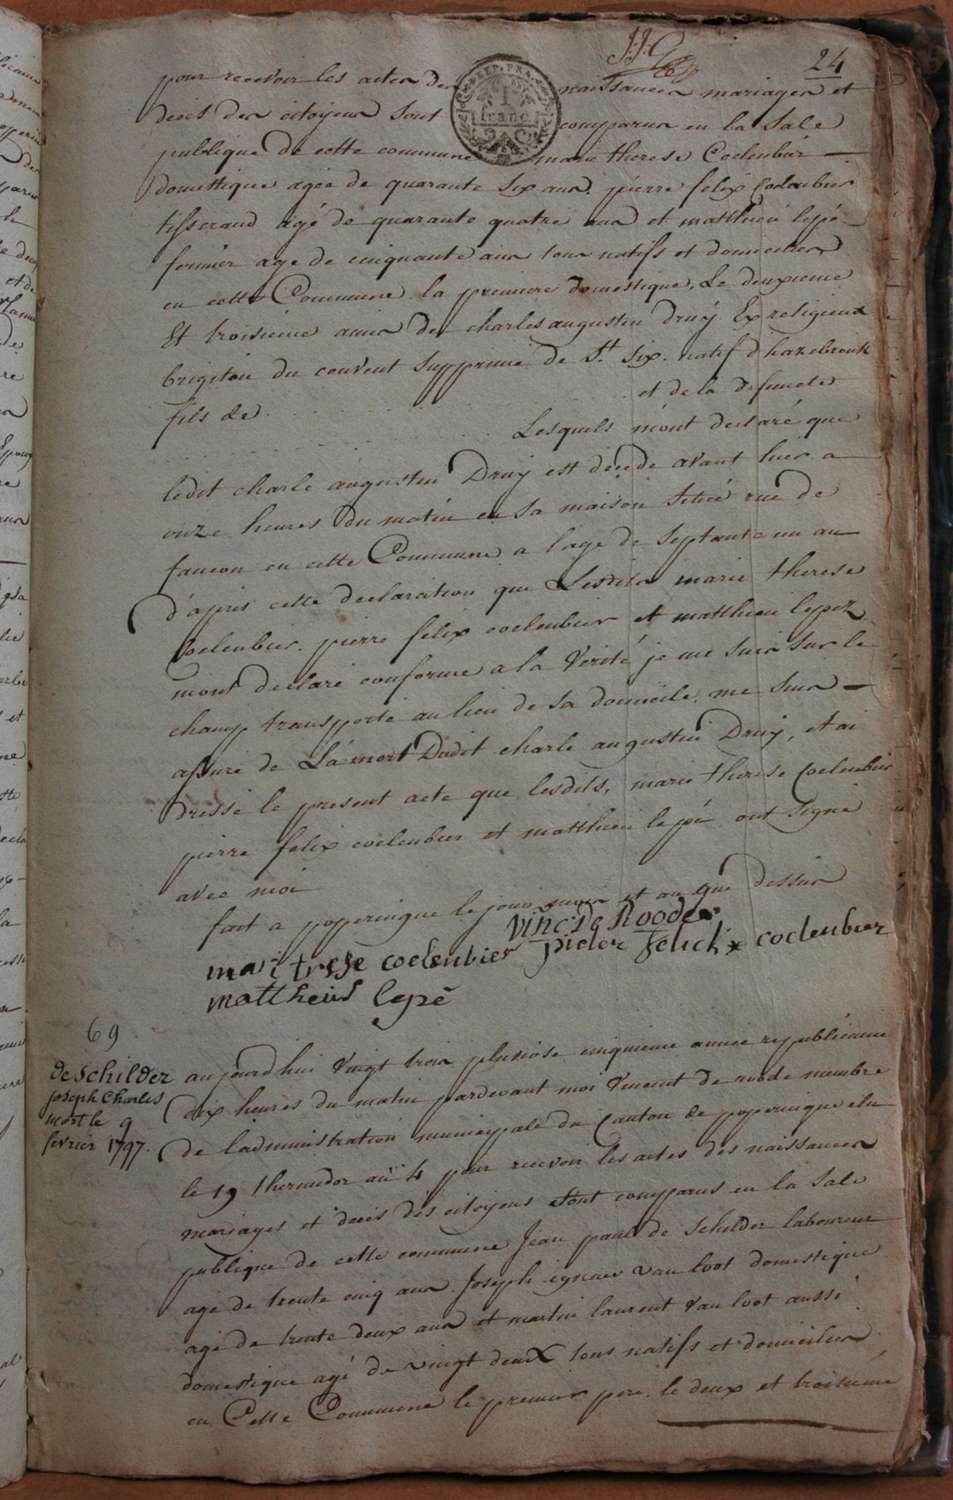 24
pour recevoir les actes des naissances mariages et
REP. FRA.
1
franc
deces des citoyens sont comparus en la Sale
publique de cette commune marie therese Coelenbier
domestique agée de quarante six ans, pierre felix Coelenbier
tisserand agé de quarante quatre ans et matthieu lepé
fermier agé de cinquante ans tous natifs et domicilies
en cette Commune la premiere domestique, Le deuxieme
Et troisieme amis de charles augustin Druÿ Ex religieux
brigitin du couvent supprimé de St. Six. natif d'hazebrouk
fils de . . . . . et de la defuncte
Lesquels m'ont declaré que
ledit charle augustin Druÿ est décédé avant hier a
onze heures du matin en sa maison Situé rue de
faucon en cette Commune a l'age de septante un an
D'apris cette declaration que Lesdits marie therese
Coelenbier, pierre felix coelenbier et matthieu lepez
m'ont declaré conforme a la Verité je me suis sur le
champ transporté au lieu de sa domicile, me suis
assuré de La mort Dudit charle augustin Druÿ, et ai
Dressé le present acte que lesdits, marie therese Coelenbier
pierre felix coelenbier et matthieu lepé ont signé
avec moi
fait a poperingue le jour mois et an que dessus
Vinc: De Roode
mari trese coelenbier pieter felick x coelenbier
mattheus lepé
69
de Schilder
joseph Charles
mort le 9
fevrier 1797.
aujourd'hui Vingt trois pluviose cinquieme année republicaine
Dix heures du matin pardevant moi Vincent de roode membre
de l'administration municipale du Canton de poperingue elu
le 19 thermidor an 4 pour recevoir les actes des naissances
mariages et decés des citoyens sont comparus en la Sale
publique de cette commune Jean paul de Schilder laboureur
agé de trente cinq ans Joseph ignace van loot domestique
agé de trente deux ans et martin laurent Van loot aussi
domestique agé de vingt deux tous natifs et domicilies
en Cette Commune le premier pere le deux et troisieme